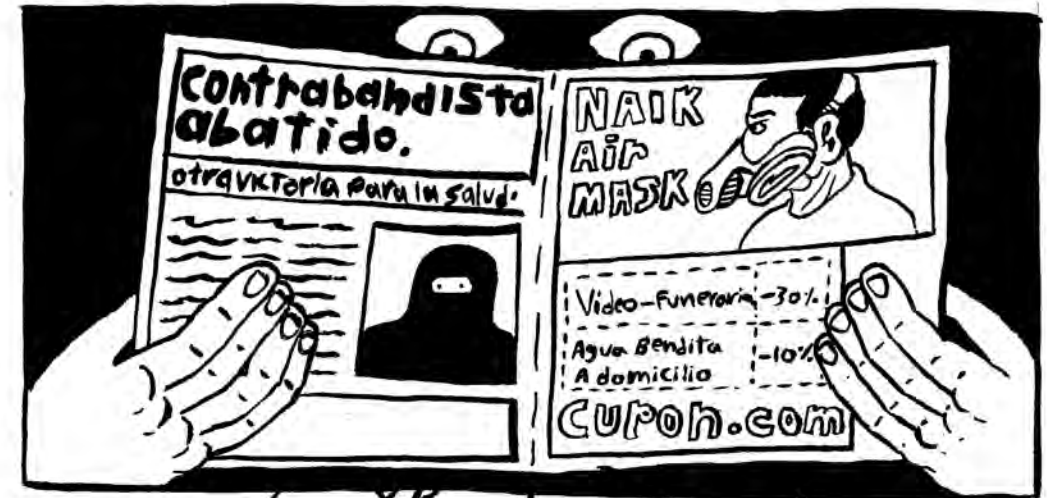 contrabandista
abatido.
otra victoria para la salud.
NAIK
AiR
MASK
Video-Funeraria -30%
Agua Bendita -10%
A domicilio
CUPON.COM